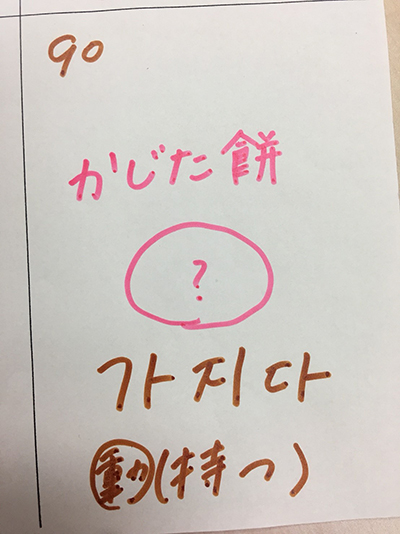 90
かじた餅
?
가지다
動(持つ)